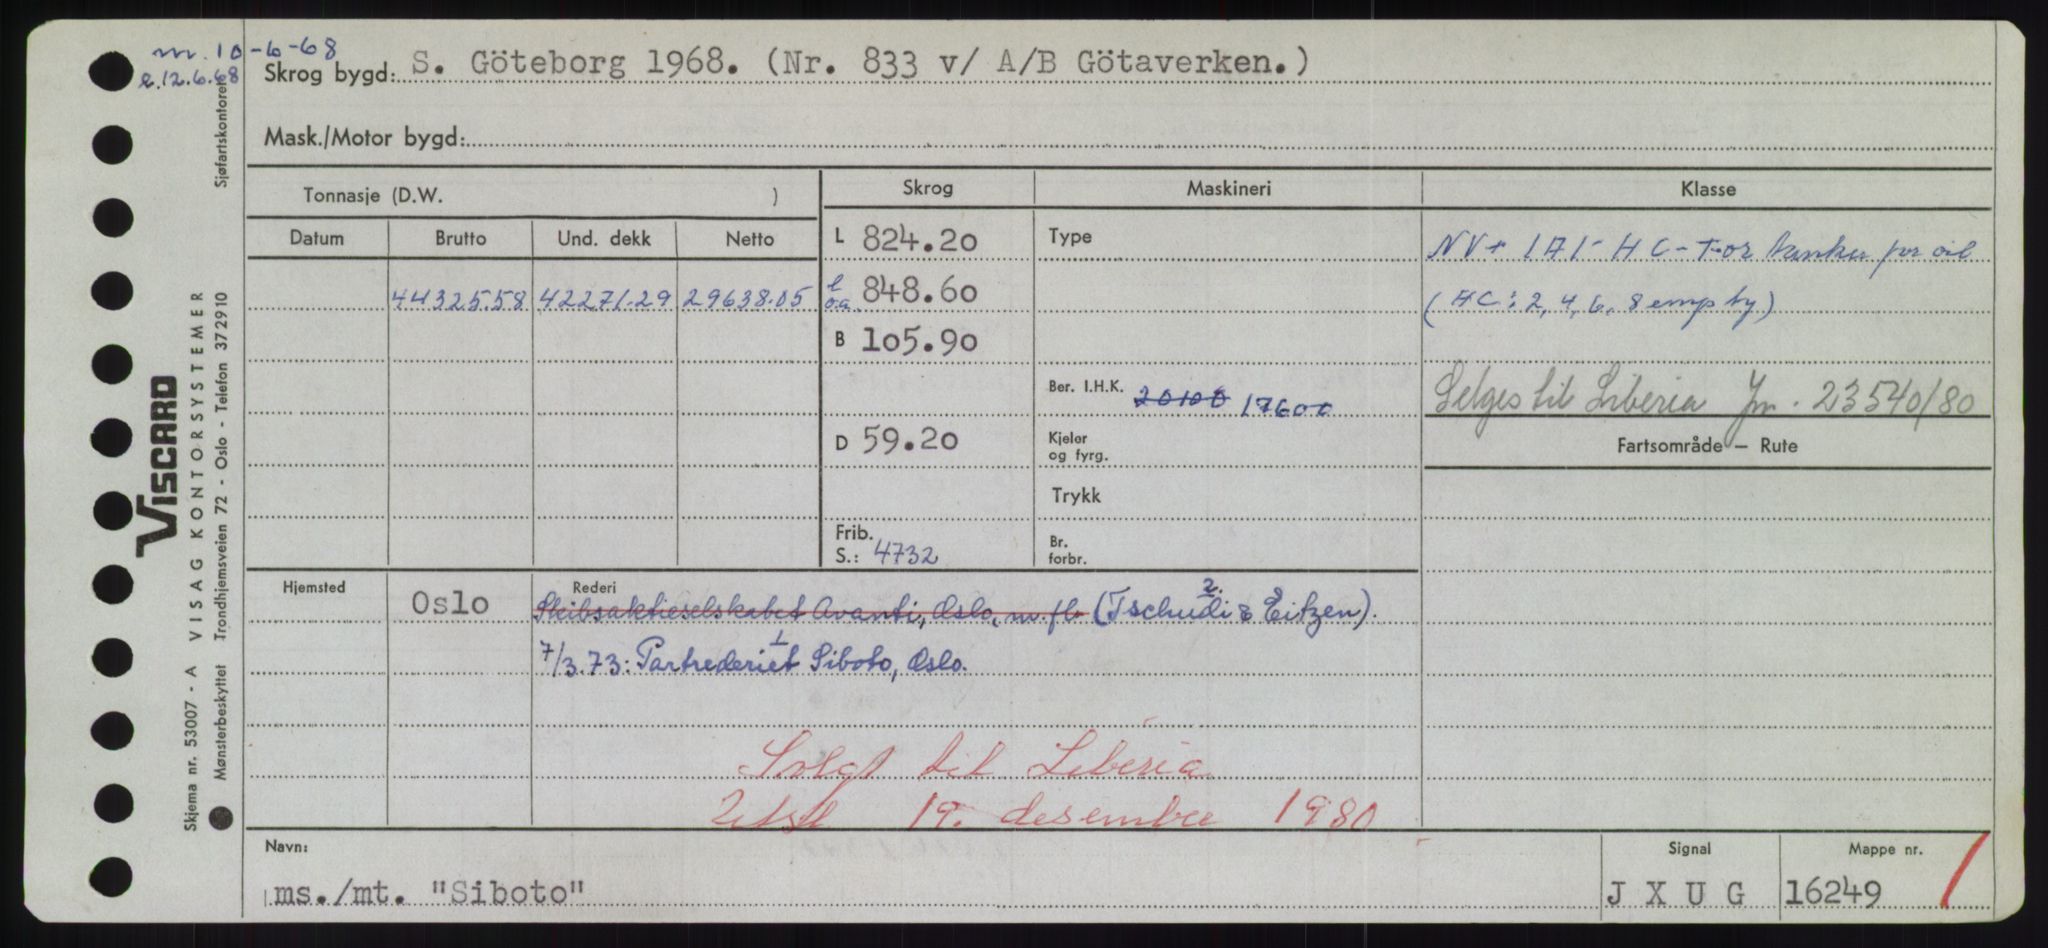 m. 10-6-68
e. 12.6.68
Skrog bygd: S. Göteborg 1968. (Nr. 833 v/ A/B Götaverken.)
Mask./Motor bygd:
Tonnasje (D.W. )
Skrog Maskineri Klasse
Datum Brutto Und. dekk Netto
L 824.20
Type
NV+ 1A1- HC-T-or tanker for oil
44325.58 42271.29 29638.05
l o.a. 848.60
(HC: 2, 4, 6, 8 empty)
B 105.90
Ber. I.H.K. 20100 17600
Selges til Liberia Jnr. 23540/80
D 59.20
Kjeler og fyrg.
Fartsområde — Rute
Trykk
Frib. S.: 4732
Br. forbr.
Hjemsted Oslo
Rederi
Skibsaktieselskabet Avanti, Oslo, m.fl. (Tschudi & Eitzen). 2.
7/3.73: Partrederiet Siboto, Oslo. 1
Solgt til Liberia
19. desember 1980
Navn:
ms./mt. "Siboto"
Signal
J X U G
Mappe nr.
16249
VISCARD
VISAG KONTORSYSTEMER
Skjema nr. 53007 - A
Mønsterbeskyttet Trondhjemsveien 72 - Oslo - Telefon 372910
Sjøfartskontoret